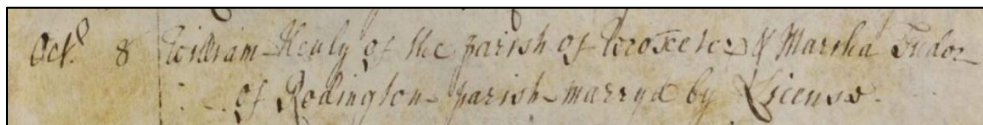 Octo. 8 William Henly of the parish of Wroxeter & Martha Tudor
of Rodington parish marryd by License.